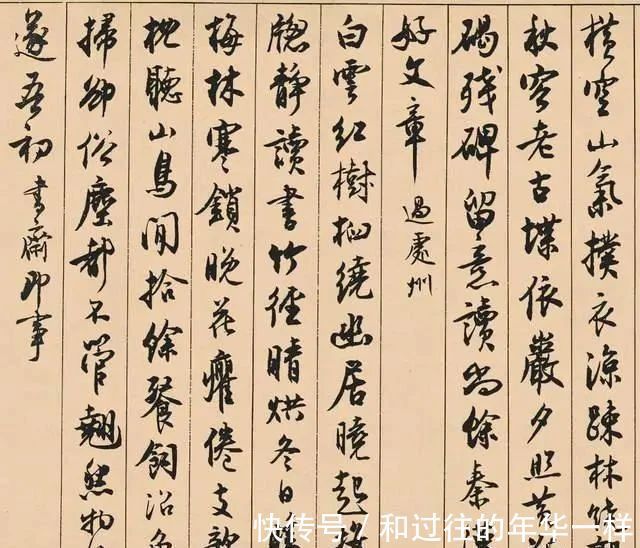 横空山氣撲衣涼疎林
秋容老古堞依巖夕照
碣残碑留意讀尚餘秦
好文章 過處州
白雲紅樹繞幽居曉起
窓靜讀書竹徑晴烘冬日
梅林寒鎖晚花癯倦支
枕聽山鳥閒拾餘餐飼沼
掃卻俗塵都不管翹然物
遂吾初 書齋即事
快传号 / 和过往的年华一样